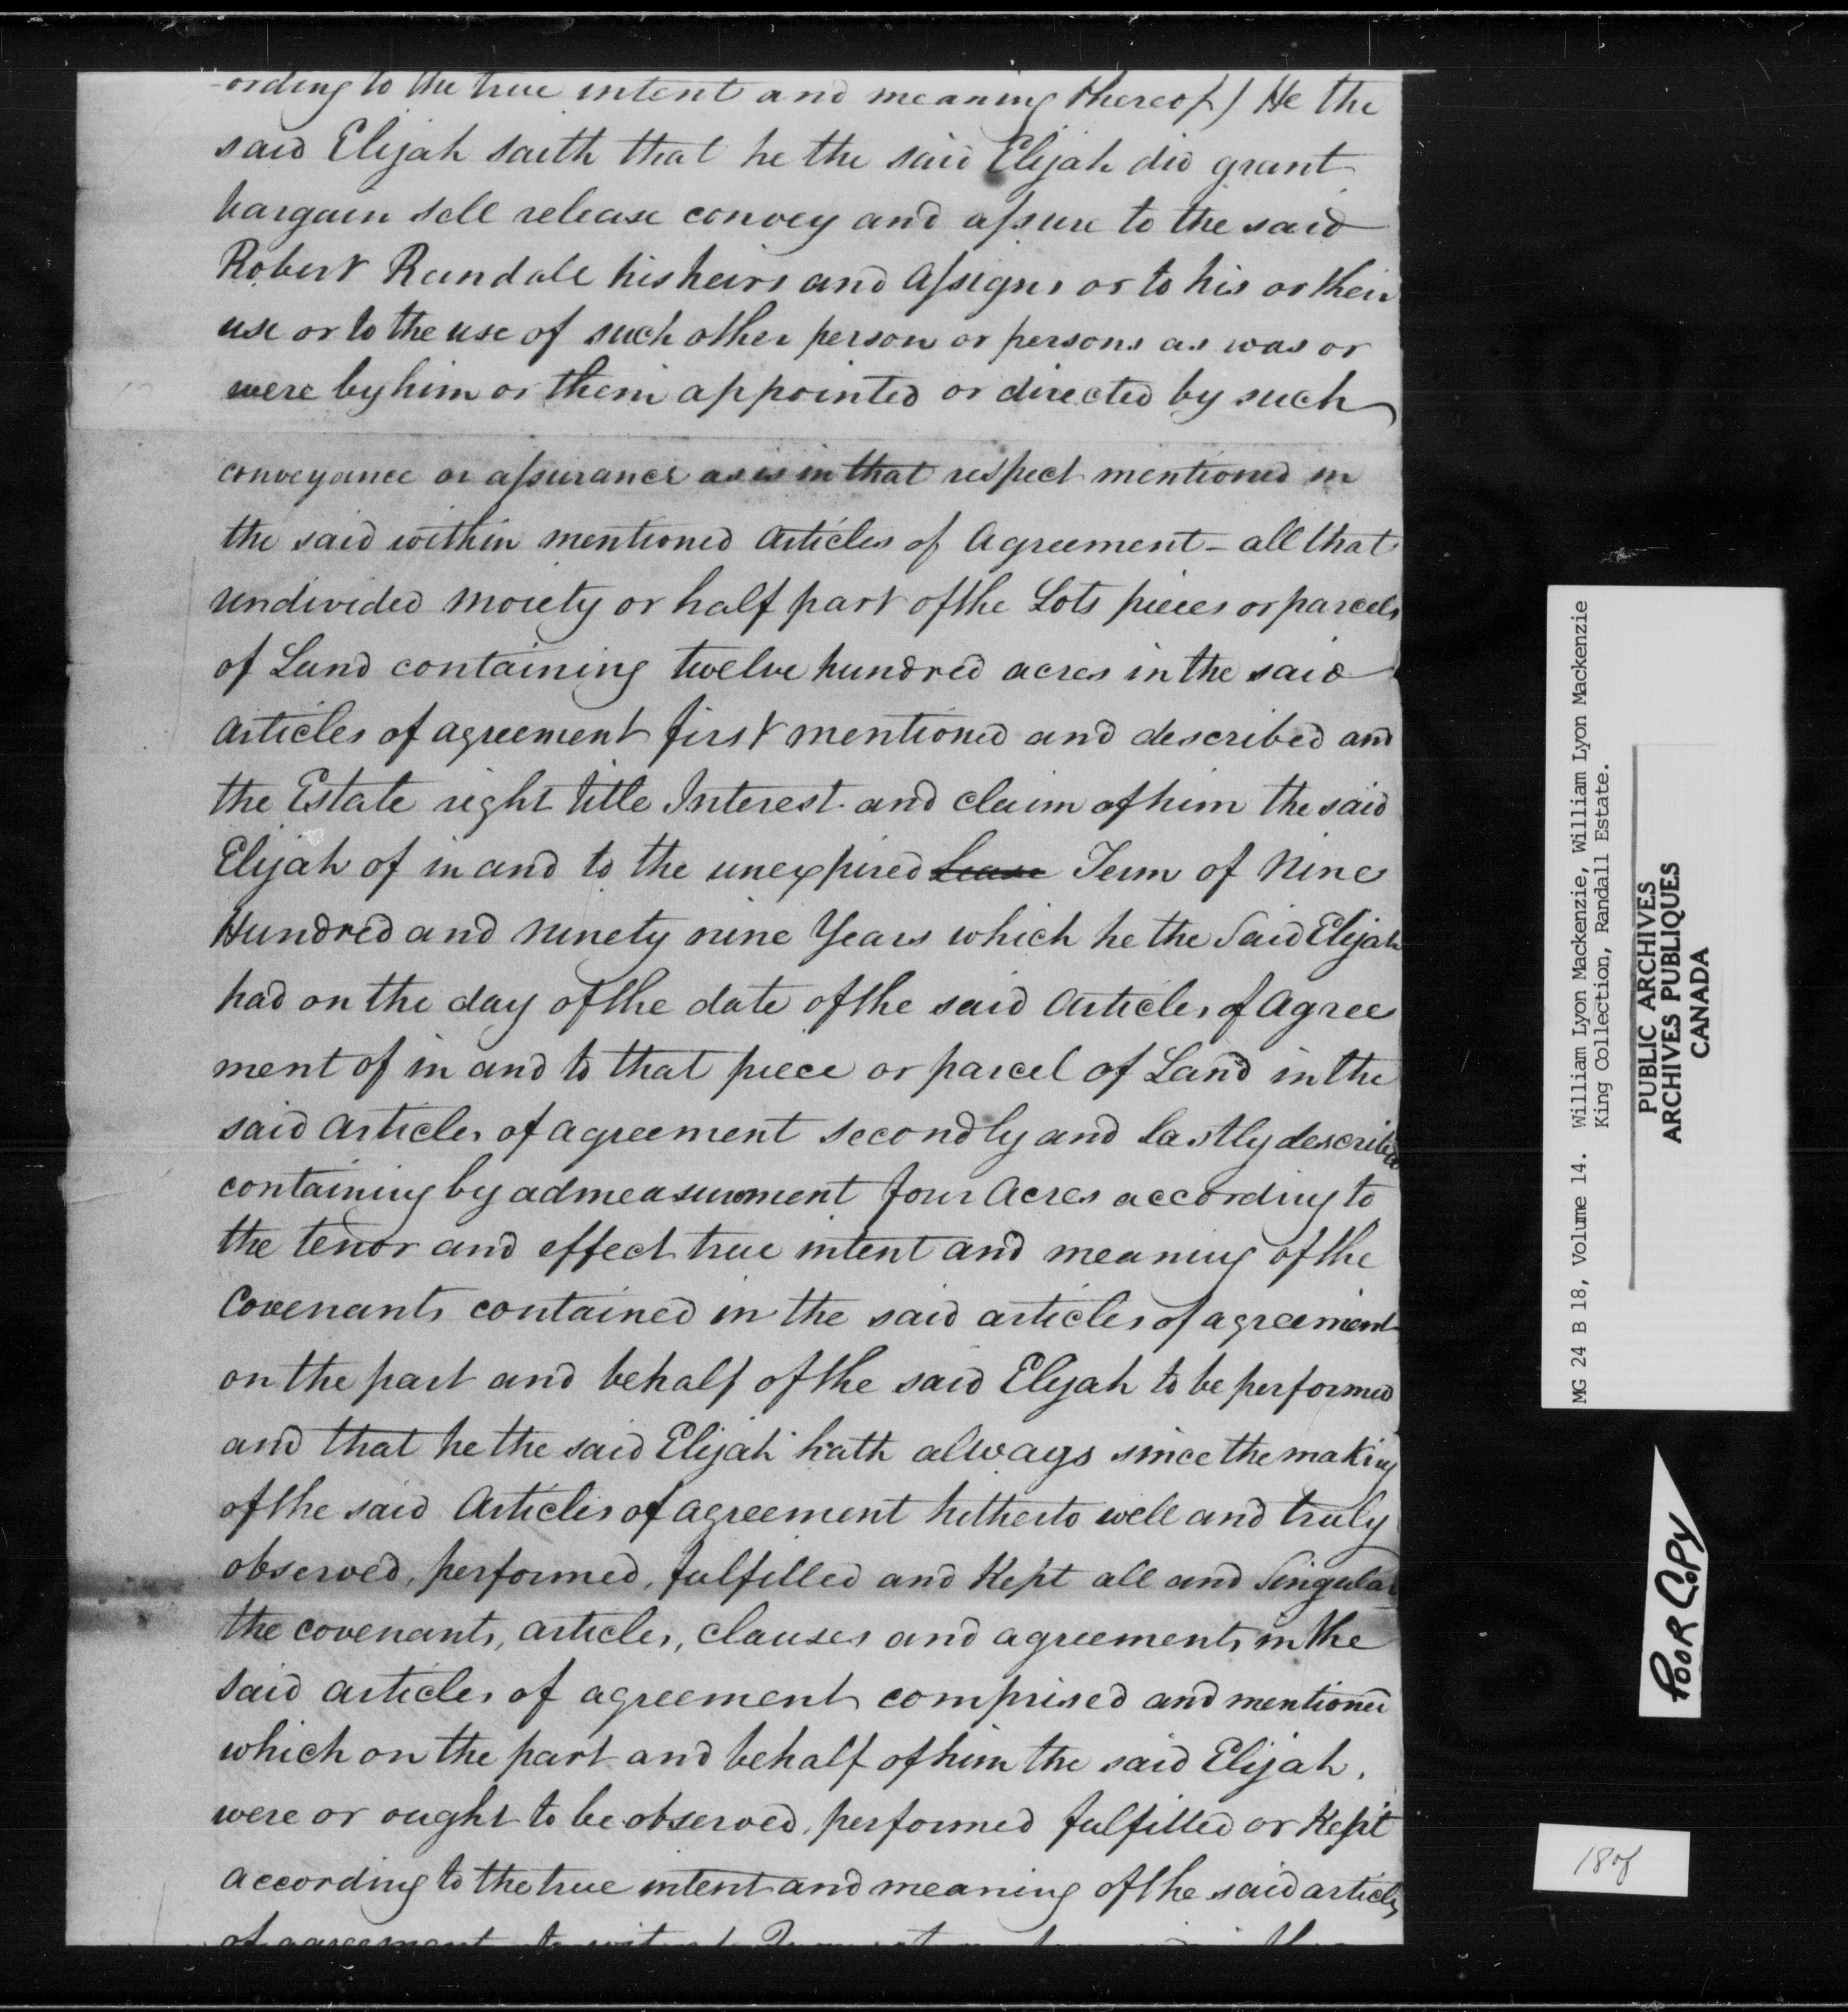 -ording to the true intent and meaning thereof) He the
said Elijah saith that he the said Elijah did grant
bargain sell release convey and assure to the said
Robert Randall his heirs and Assigns or to his or their
use or to the use of such other person or persons as was or
were by him or them appointed or directed by such
conveyance or assurance as is in that respect mentioned in
the said within mentioned Articles of Agreement - all that
undivided moiety or half part of the Lots pieces or parcels
of Land containing twelve hundred acres in the said
articles of agreement first mentioned and described and
the Estate right title Interest and claim of him the said
Elijah of in and to the unexpired Lease Term of Nine
Hundred and ninety nine Years which he the Said Elijah
had on the day of the date of the said Articles of Agree
ment of in and to that piece or parcel of Land in the
said Articles of agreement secondly and lastly described
containing by admeasurement four Acres according to
the tenor and effect true intent and meaning of the
Covenants contained in the said articles of agreement
on the part and behalf of the said Elijah to be performed
and that he the said Elijah hath always since the making
of the said Articles of agreement hitherto well and truly
observed, performed, fulfilled and Kept all and Singular
the covenants, articles, clauses and agreements in the
said articles of agreement comprised and mentioned
which on the part and behalf of him the said Elijah.
were or ought to be observed, performed fulfilled or Kept
according to the true intent and meaning of the said articles
of agreement to wit at
MG 24 B 18, Volume 14. William Lyon Mackenzie, William Lyon Mackenzie
King Collection, Randall Estate.
PUBLIC ARCHIVES
ARCHIVES PUBLIQUES
CANADA
POOR COPY